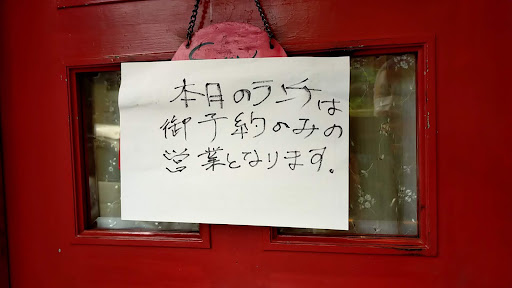 本日のランチは
御予約のみの
営業となります。